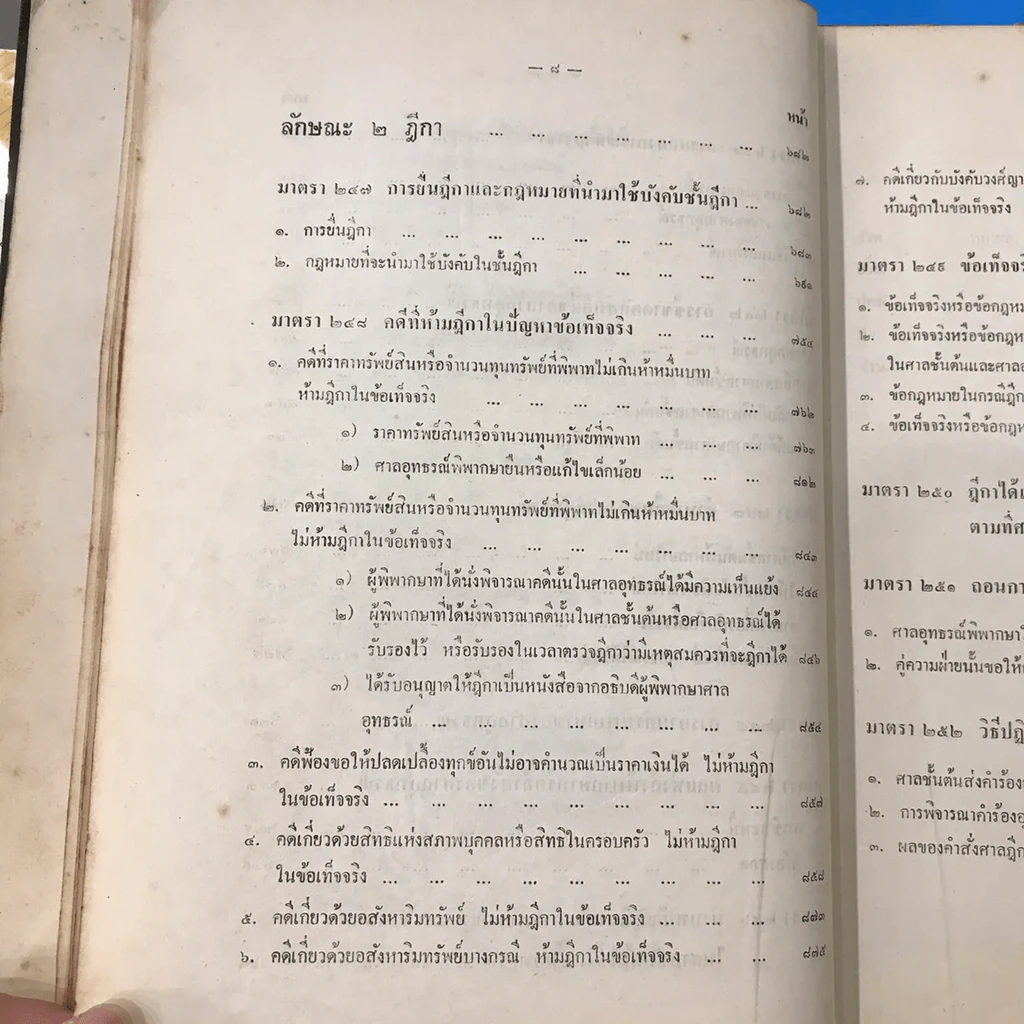 — ๘ —
หน้า
ลักษณะ ๒ ฎีกา ... ... ... ... ... ... ... ๖๘๒
มาตรา ๒๔๗ การยื่นฎีกาและกฎหมายที่นำมาใช้บังคับชั้นฎีกา ... ๖๘๒
๑. การยื่นฎีกา ... ... ... ... ... ... ... ... ... ๖๘๓
๒. กฎหมายที่จะนำมาใช้บังคับในชั้นฎีกา ... ... ... ... ... ๖๙๑
มาตรา ๒๔๘ คดีที่ห้ามฎีกาในปัญหาข้อเท็จจริง ... ... ... ๗๕๔
๑. คดีที่ราคาทรัพย์สินหรือจำนวนทุนทรัพย์ที่พิพาทไม่เกินห้าหมื่นบาท
ห้ามฎีกาในข้อเท็จจริง ... ... ... ... ... ... ... ๗๖๒
๑) ราคาทรัพย์สินหรือจำนวนทุนทรัพย์ที่พิพาท ... ... ... ๗๖๓
๒) ศาลอุทธรณ์พิพากษายืนหรือแก้ไขเล็กน้อย ... ... ... ๘๑๒
๒. คดีที่ราคาทรัพย์สินหรือจำนวนทุนทรัพย์ที่พิพาทไม่เกินห้าหมื่นบาท
ไม่ห้ามฎีกาในข้อเท็จจริง ... ... ... ... ... ... ... ๘๔๓
๑) ผู้พิพากษาที่ได้นั่งพิจารณาคดีนั้นในศาลอุทธรณ์ได้มีความเห็นแย้ง ๘๔๔
๒) ผู้พิพากษาที่ได้นั่งพิจารณาคดีนั้นในศาลชั้นต้นหรือศาลอุทธรณ์ได้
รับรองไว้ หรือรับรองในเวลาตรวจฎีกาว่ามีเหตุสมควรที่จะฎีกาได้ ๘๔๖
๓) ได้รับอนุญาตให้ฎีกาเป็นหนังสือจากอธิบดีผู้พิพากษาศาล
อุทธรณ์ ... ... ... ... ... ... ... ... ๘๕๔
๓. คดีฟ้องขอให้ปลดเปลื้องทุกข์อันไม่อาจคำนวณเป็นราคาเงินได้ ไม่ห้ามฎีกา
ในข้อเท็จจริง ... ... ... ... ... ... ... ... ... ๘๕๗
๔. คดีเกี่ยวด้วยสิทธิแห่งสภาพบุคคลหรือสิทธิในครอบครัว ไม่ห้ามฎีกา
ในข้อเท็จจริง ... ... ... ... ... ... ... ... ... ๘๕๘
๕. คดีเกี่ยวด้วยอสังหาริมทรัพย์ ไม่ห้ามฎีกาในข้อเท็จจริง ... ... ... ๘๗๓
๖. คดีเกี่ยวด้วยอสังหาริมทรัพย์บางกรณี ห้ามฎีกาในข้อเท็จจริง ... ... ๘๗๕
๗. คดีเกี่ยวกับบังคับวงศ์ญา
ห้ามฎีกาในข้อเท็จจริง
มาตรา ๒๔๙ ข้อเท็จจริ
๑. ข้อเท็จจริงหรือข้อกฎหม
๒. ข้อเท็จจริงหรือข้อกฎห
ในศาลชั้นต้นและศาล
๓. ข้อกฎหมายในกรณีฎีก
๔. ข้อเท็จจริงหรือข้อกฎห
มาตรา ๒๕๐ ฎีกาได้
ตามที่ศ
มาตรา ๒๕๑ ถอนกา
๑. ศาลอุทธรณ์พิพากษา
๒. คู่ความฝ่ายนั้นขอให้
มาตรา ๒๕๒ วิธีปฏิ
๑. ศาลชั้นต้นส่งคำร้อง
๒. การพิจารณาคำร้อง
๓. ผลของคำสั่งศาลฎีก